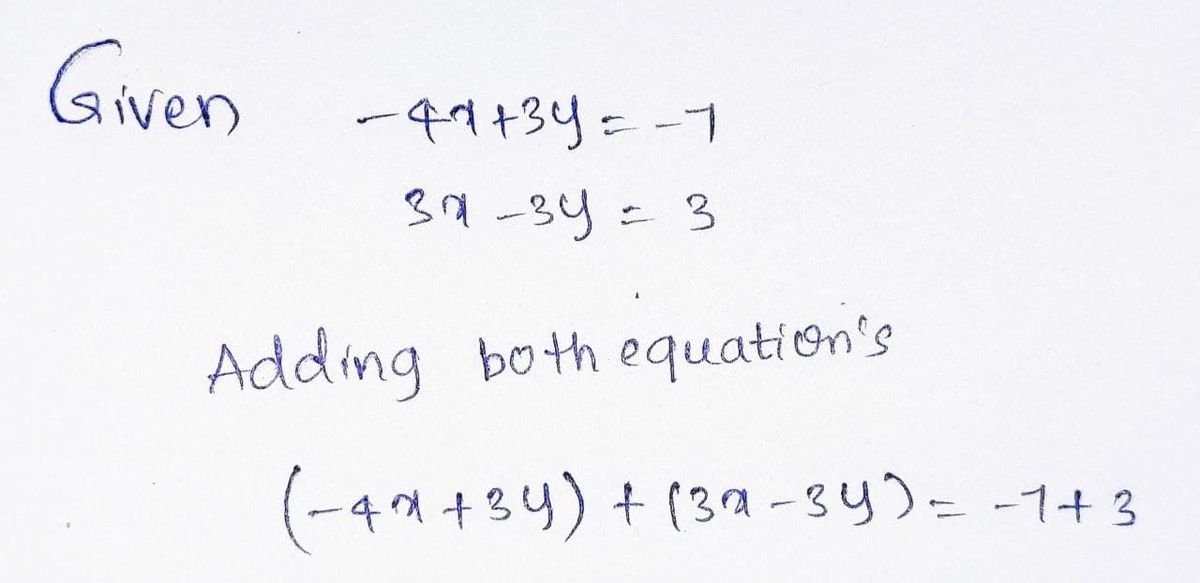 Given -4x+3y=-7
3x-3y=3
Adding both equation's
(-4x+3y)+(3x-3y)=-7+3